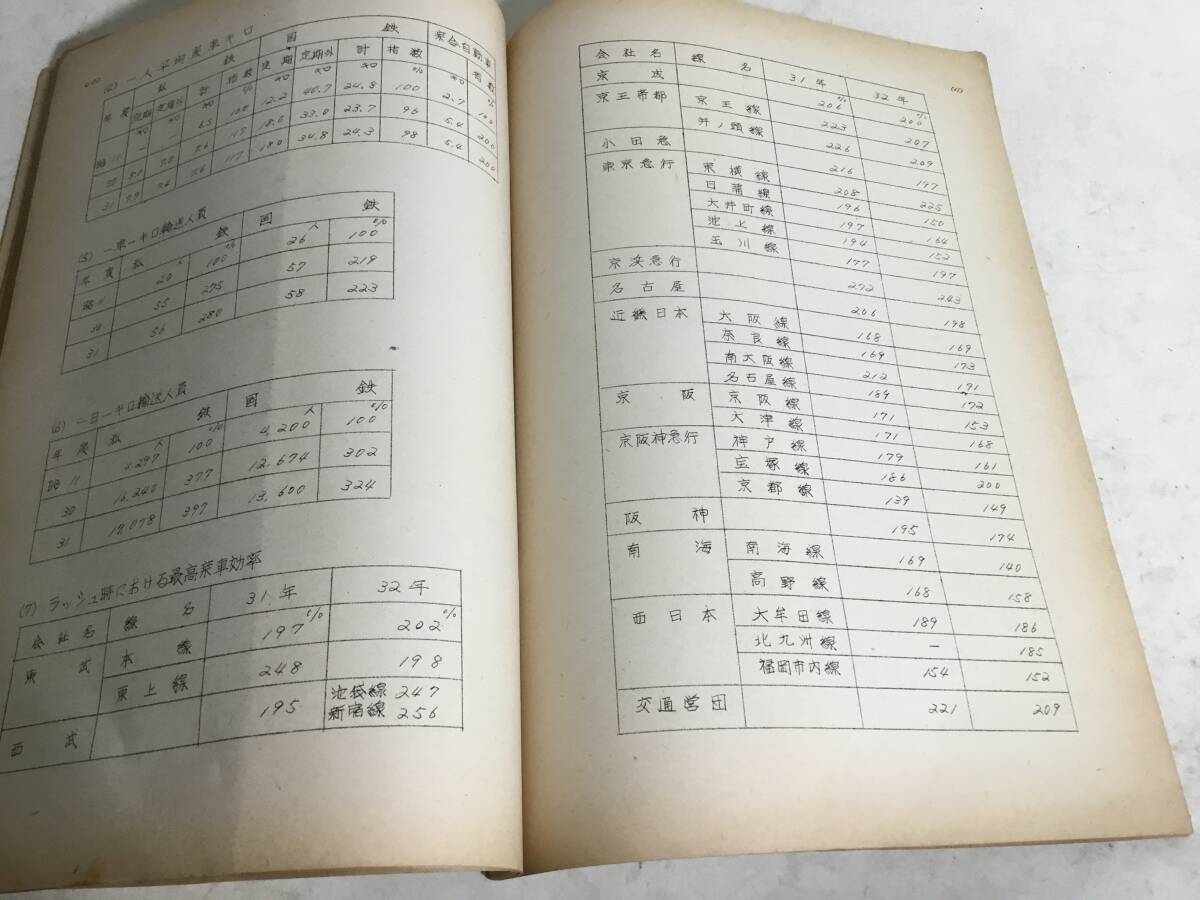 一人平均乗車キロ
年度 私鉄 国鉄 乗合自動車
定期 定期外 計 指数 定期 定期外 計 指数 指数
昭11 — — 6.5 100 12.2 40.7 24.8 100 2.7 100
30 117 18.0 33.0 23.7 96 5.4 200
31 117 18.0 34.8 24.3 98 5.4 200
(5) 一車一キロ輸送人員
年度 私鉄 国鉄
昭11 20人 100% 26人 100%
30 55 275 57 219
31 56 280 58 223
(6) 一日一キロ輸送人員
年度 私鉄 国鉄
昭11 4,297人 100% 4,200人 100%
30 16,240 377 12,674 302
31 17,078 397 13,600 324
(7) ラッシュ時における最高乗車効率
会社名 線名 31年 32年
東武 本線 197% 202%
東上線 248 198
西武 195 池袋線 247
新宿線 256
会社名 線名 31年 32年
京成 206% 200%
京王帝都 京王線 223 207
井ノ頭線 226 209
小田急 216 197
東京急行 東横線 208 225
目蒲線 196 150
大井町線 197 164
池上線 194 152
玉川線 177 197
京浜急行 272 243
名古屋 206 198
近畿日本 大阪線 168 169
奈良線 169 173
南大阪線 212 191
名古屋線 189 172
京阪 京阪線 171 153
大津線 171 168
京阪神急行 神戸線 179 161
宝塚線 186 200
京都線 139 149
阪神 195 174
南海 南海線 169 140
高野線 168 158
西日本 大牟田線 189 186
北九州線 — 185
福岡市内線 154 152
交通営団 221 209